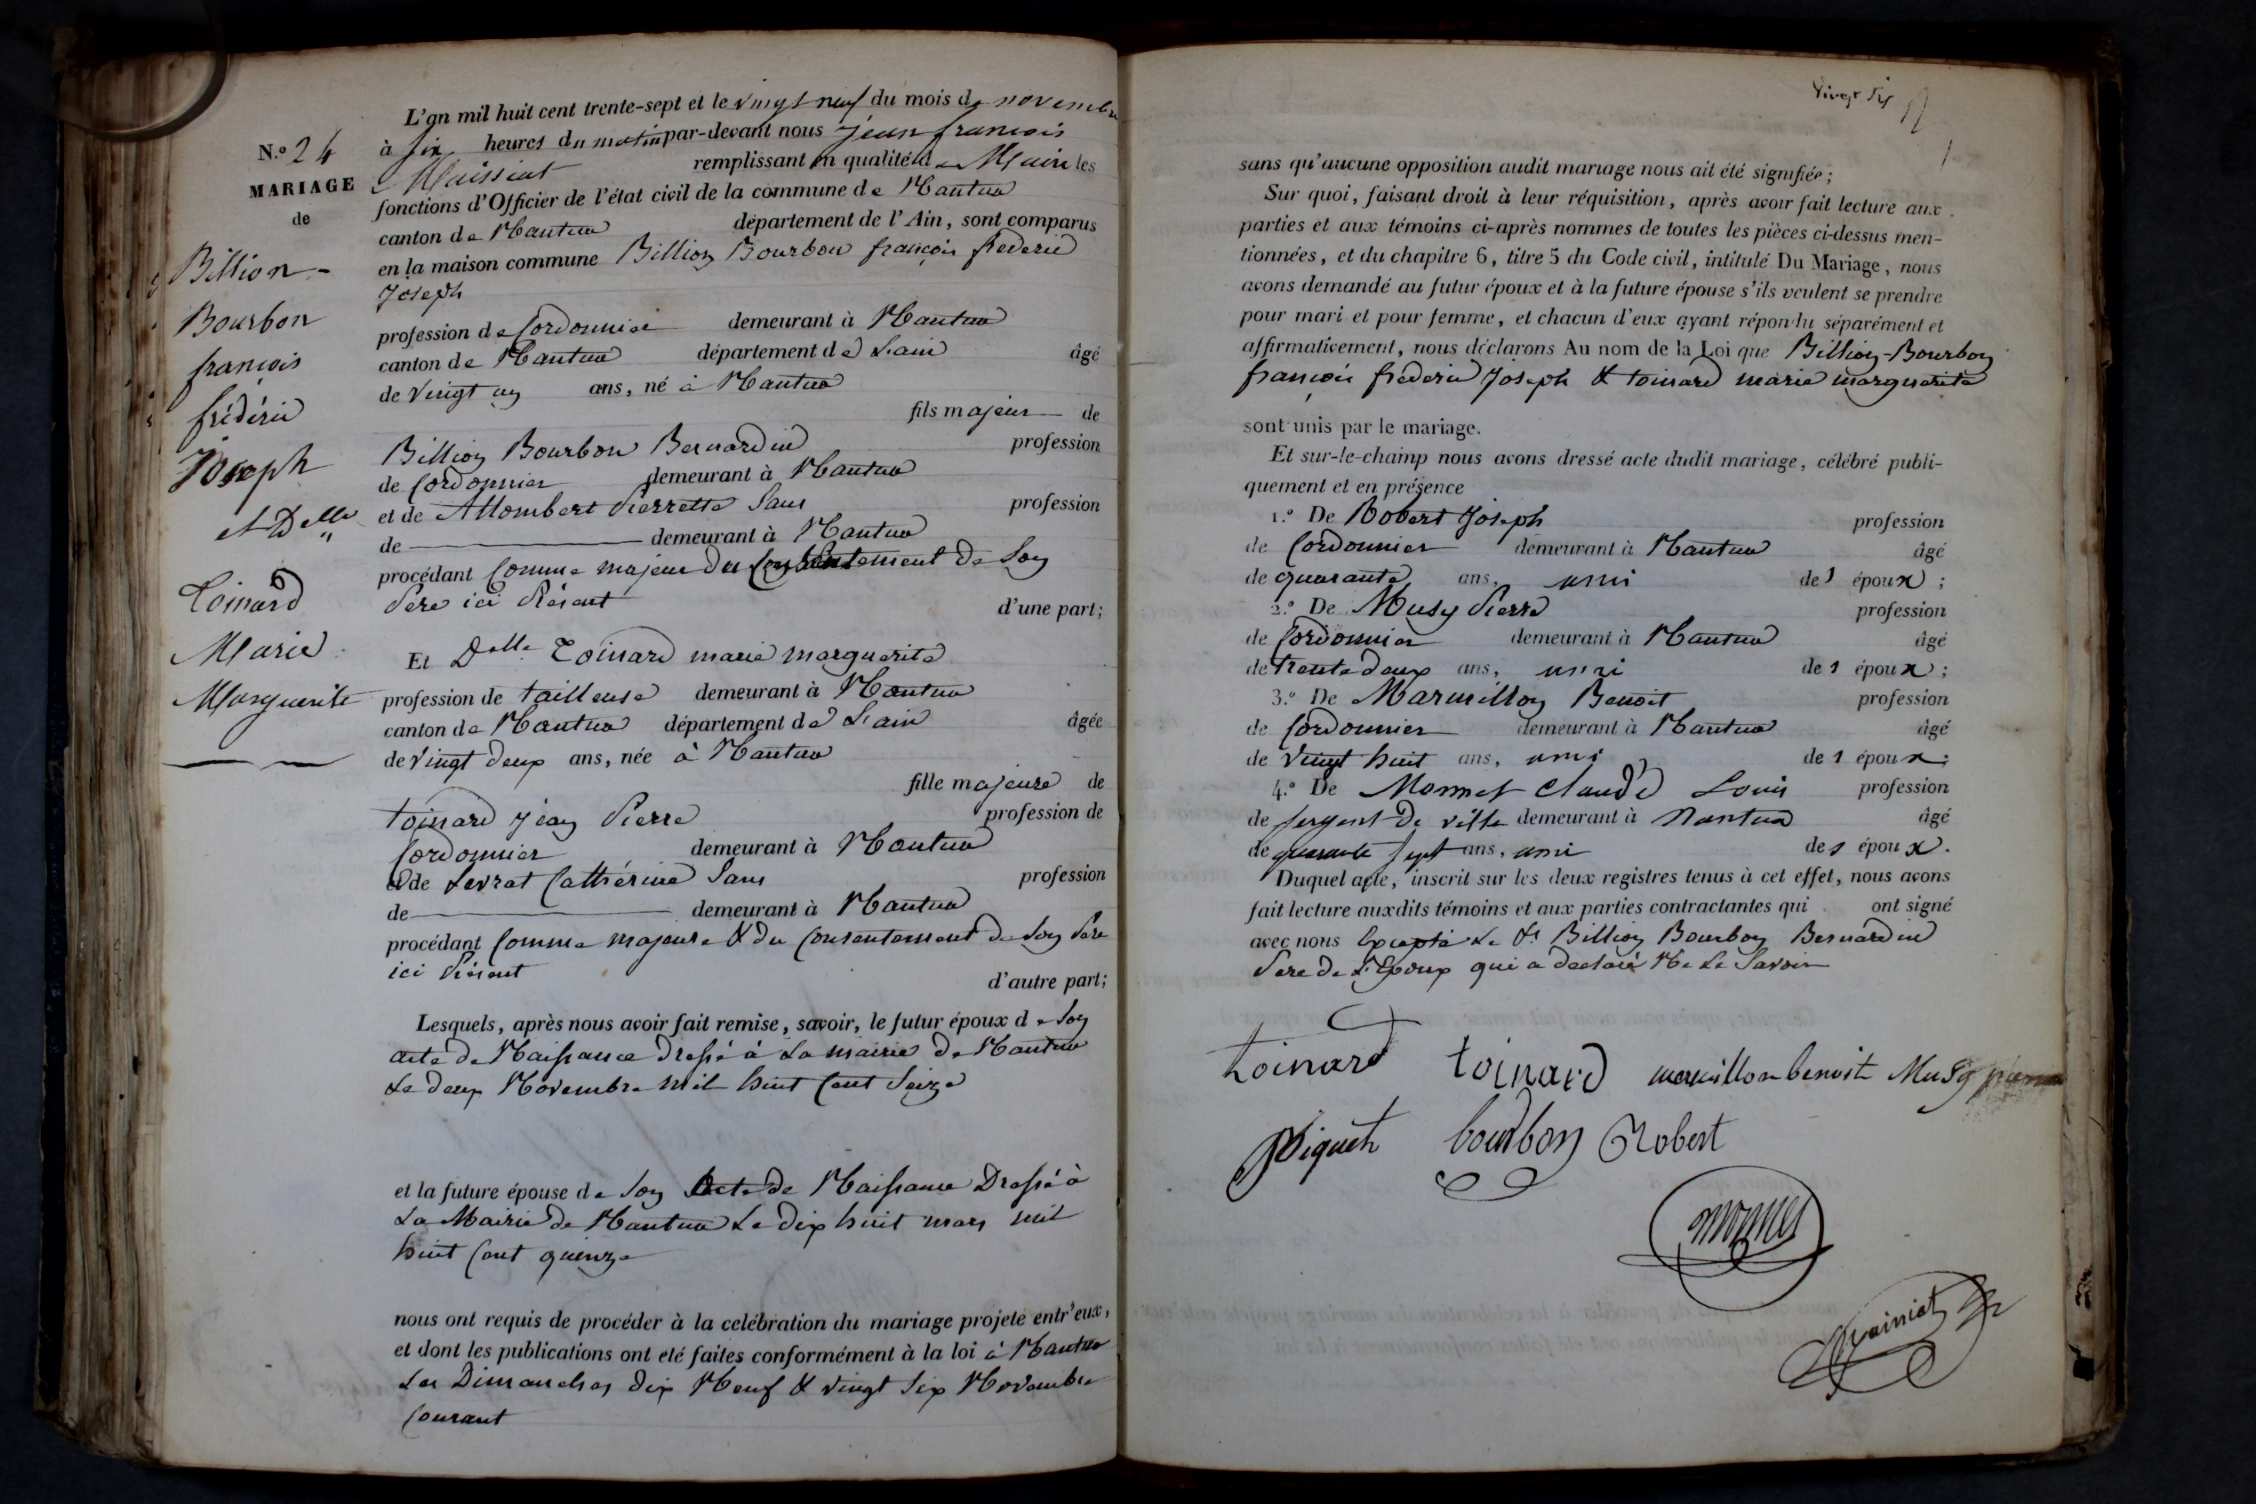 N.o 24
MARIAGE
de
Billion-
Bourbon
françois
frédéric
Joseph
et Delle
Toinard
Marie
Marguerite
L'an mil huit cent trente-sept et le vingt neuf du mois de novembre
à six heures du matin par-devant nous jean françois
Maissiat remplissant en qualité de Maire les
fonctions d'Officier de l'état civil de la commune de Nantua
canton de Nantua département de l'Ain, sont comparus
en la maison commune Billion Bourbon françois frederic
Joseph
profession de Cordonnier demeurant à Nantua
canton de Nantua département de L'ain âgé
de vingt un ans, né à Nantua
fils majeur de
Billion Bourbon Bernardin profession
de Cordonnier demeurant à Nantua
et de Allombert Pierrette Sans profession
de demeurant à Nantua
procédant Comme majeur du Consentement de Son
Père ici Présent d'une part;
Et Delle Toinard marie marguerite
profession de tailleuse demeurant à Nantua
canton de Nantua département de L'ain âgée
de vingt deux ans, née à Nantua
fille majeure de
toinard jean Pierre profession de
Cordonnier demeurant à Nantua
et de Levrat Cathérine Sans profession
de demeurant à Nantua
procédant Comme majeure & du Consentement de Son Père
ici Présent d'autre part;
Lesquels, après nous avoir fait remise, savoir, le futur époux de Son
acte de Naissance Dressé à La mairie de Nantua
Le deux Novembre mil huit Cent Seize
et la future épouse de Son Acte de Naissance Dressé à
La Mairie de Nantua Le dix huit mars mil
huit Cent quinze
nous ont requis de procéder à la celébration du mariage projete entr'eux,
et dont les publications ont eté faites conformément à la loi à Nantua
Les Dimanches dix Neuf & vingt Six Novembre
Courant
vingt six
sans qu'aucune opposition audit mariage nous ait été signifiée;
Sur quoi, faisant droit à leur réquisition, après avoir fait lecture aux
parties et aux témoins ci-après nommes de toutes les pièces ci-dessus men-
tionnées, et du chapitre 6, titre 5 du Code civil, intitulé Du Mariage, nous
avons demandé au futur époux et à la future épouse s'ils veulent se prendre
pour mari et pour femme, et chacun d'eux ayant répondu séparément et
affirmativement, nous déclarons Au nom de la Loi que Billion-Bourbon
françois fréderic Joseph & toinard marie marguerite
sont unis par le mariage.
Et sur-le-champ nous avons dressé acte dudit mariage, célébré publi-
quement et en présence
1.o De Robert Joseph profession
de Cordonnier demeurant à Nantua âgé
de quarante ans, ami de l époux;
2.o De Musy Pierre profession
de Cordonnier demeurant à Nantua âgé
de trente deux ans, ami de l époux;
3.o De Marmillon Benoit profession
de Cordonnier demeurant à Nantua âgé
de vingt huit ans, ami de l époux;
4.o De Monnet Claude Louis profession
de sergent de ville demeurant à Nantua âgé
de quarante sept ans, ami de l époux.
Duquel acte, inscrit sur les deux registres tenus à cet effet, nous avons
fait lecture auxdits témoins et aux parties contractantes qui ont signé
avec nous Excepté Le Sr Billion Bourbon Bernardin
Père de L'Epoux qui a declaré Ne Le Savoir
toinard toinard marmillon benoit Musy pierre
Piquet bourbon Robert
monnet
Maissiat